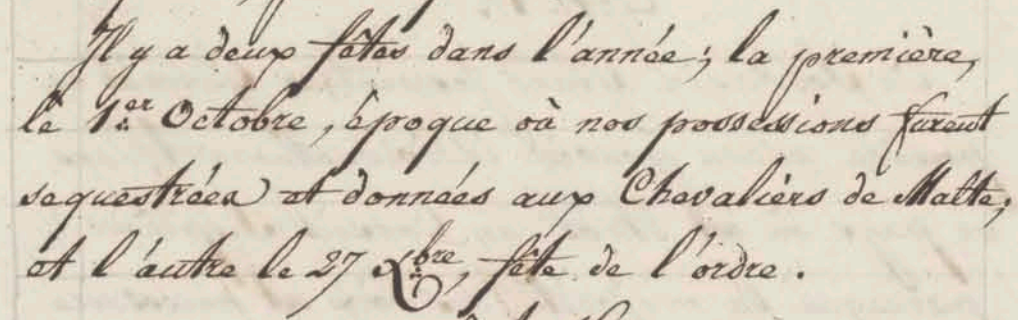 Il y a deux fêtes dans l'année; la première,
le 1.er Octobre, époque où nos possessions furent
sequestrées et données aux Chevaliers de Malte;
et l'autre le 27 Xbre, fête de l'ordre.